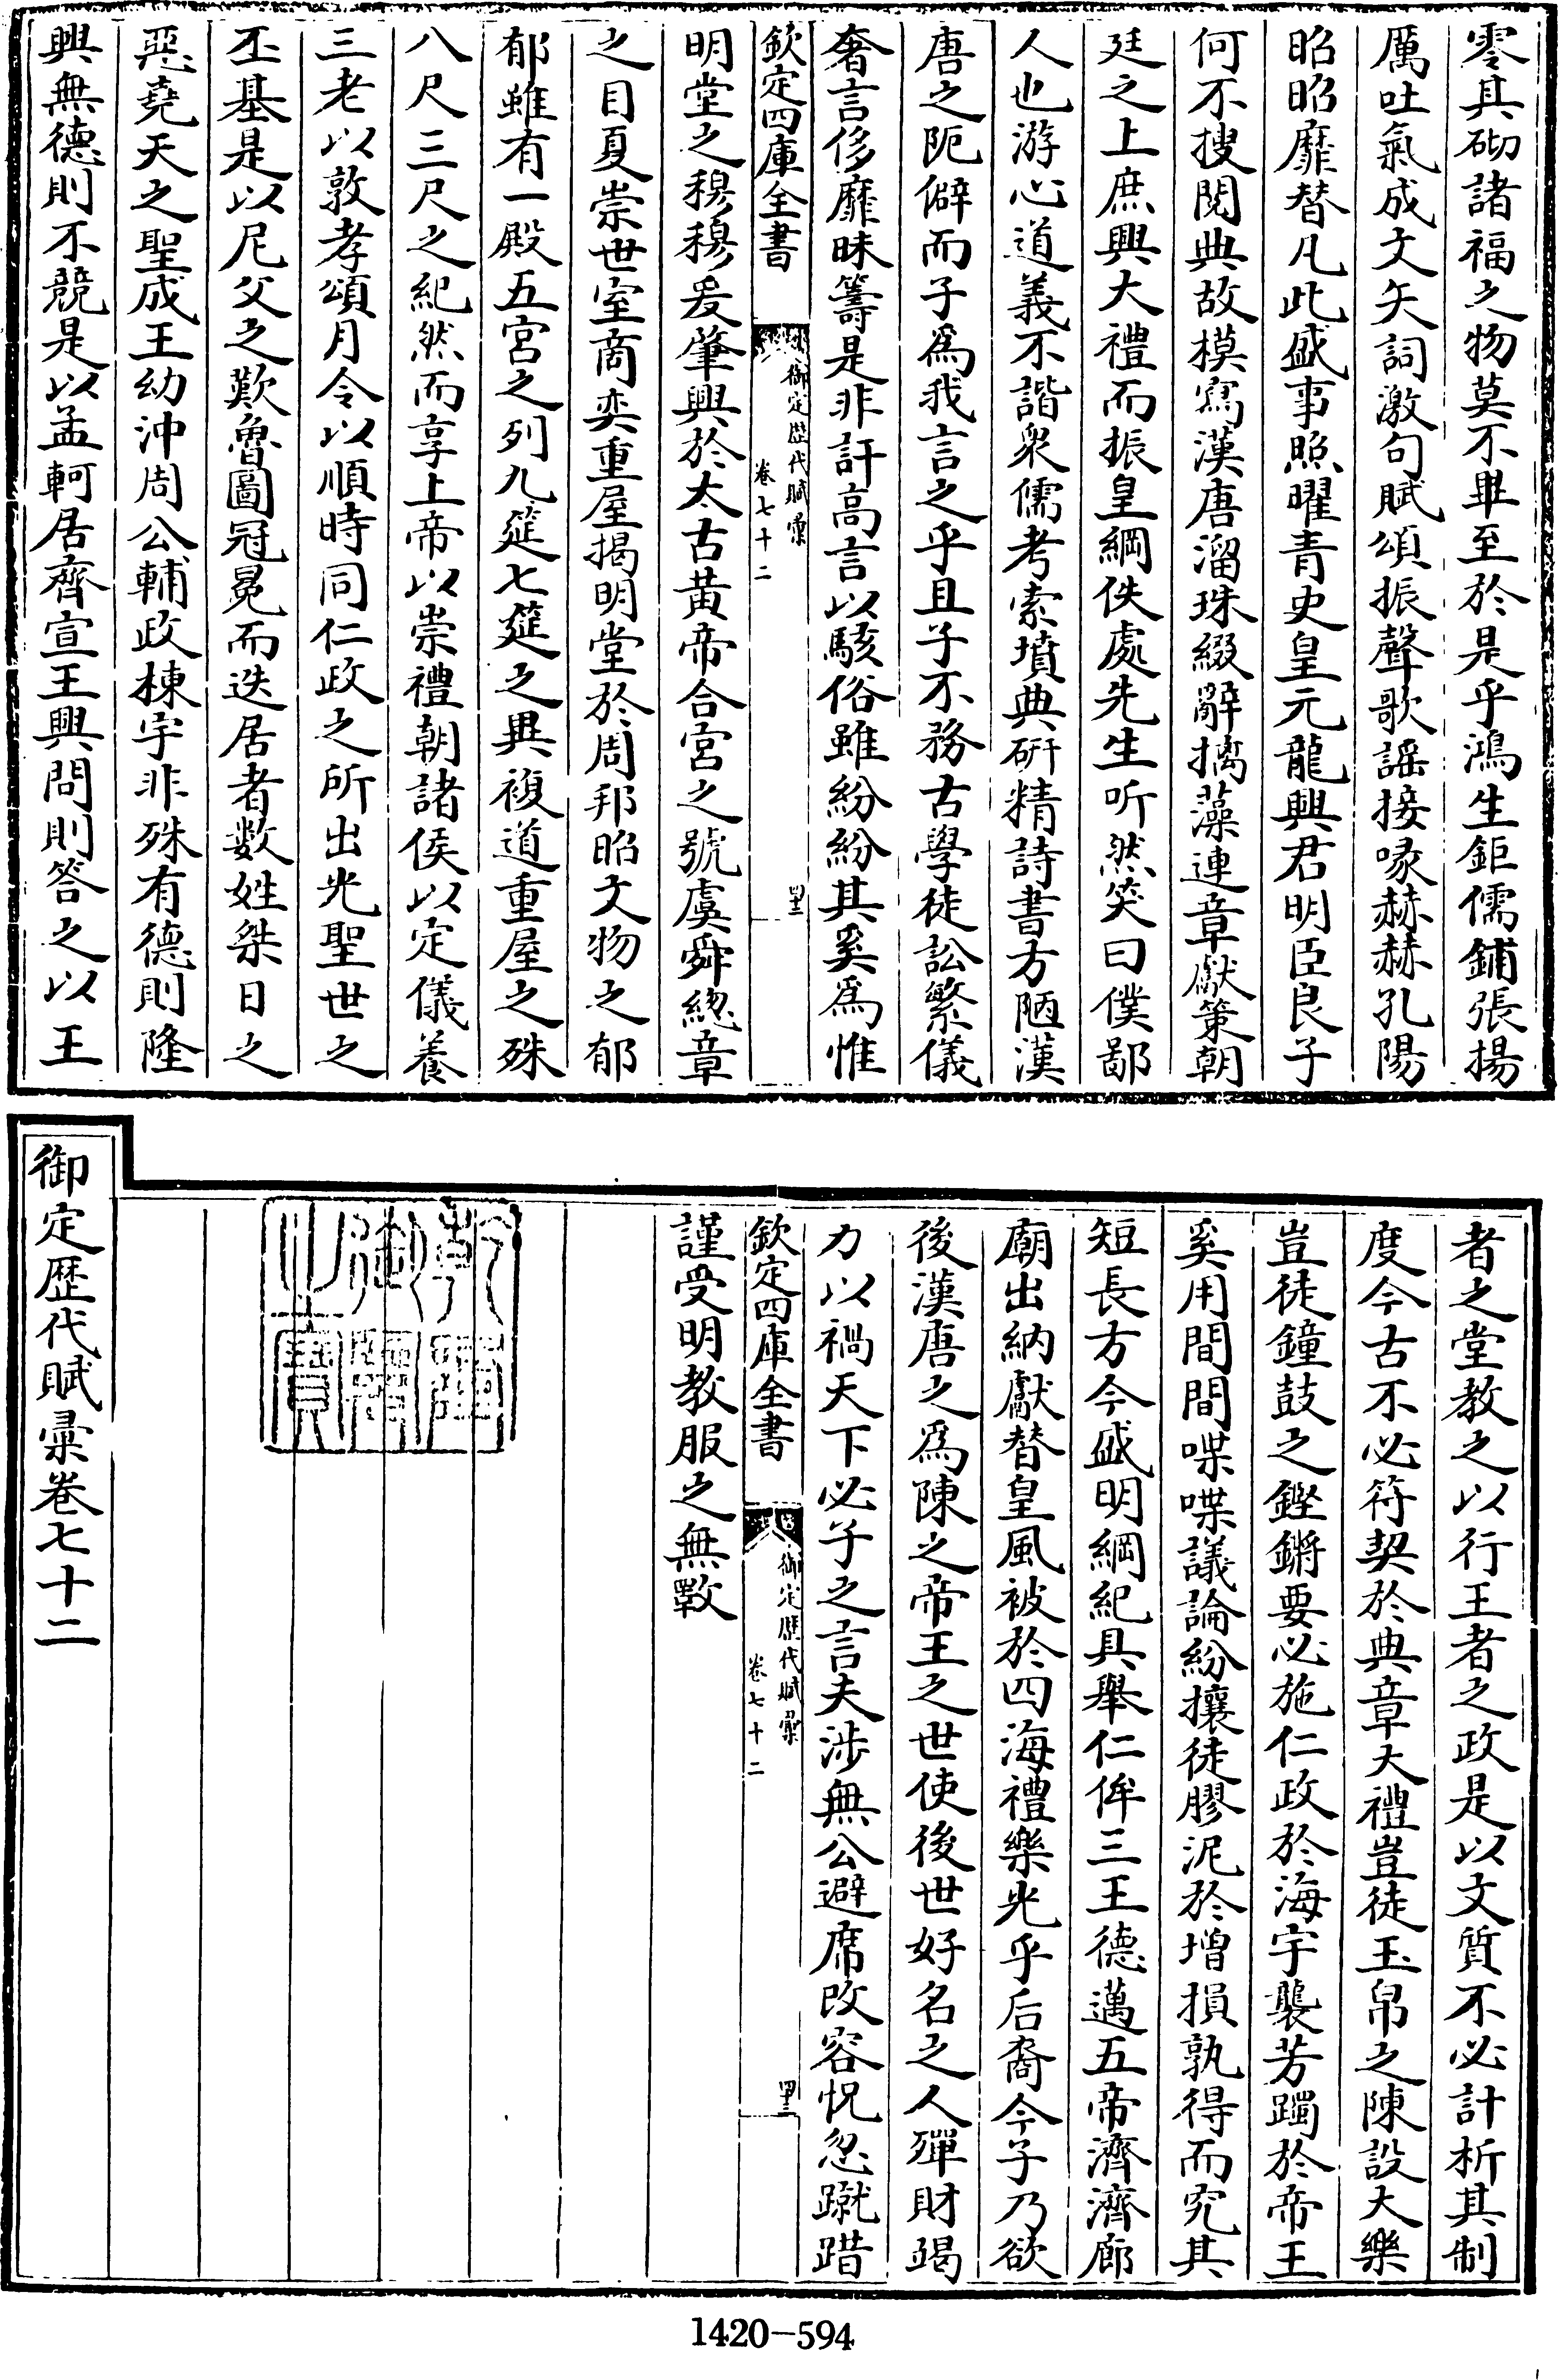 零其砌諸福之物莫不畢至於是乎鴻生鉅儒鋪張揚
厲吐氣成文矢詞激句賦頌振聲歌謡接喙赫赫孔陽
昭昭靡替凡此盛事照曜青史皇元龍興君明臣良子
何不搜閱典故模寫漢唐溜珠綴辭摛藻連章獻策朝
廷之上庶興大禮而振皇綱佚處先生听然笑曰僕鄙
人也游心道義不諧衆儒考索墳典研精詩書方陋漢
唐之阨僻而子爲我言之乎且子不務古學徒訟繁儀
奢言侈靡昧籌是非訐高言以駭俗雖紛紛其奚爲惟
欽定四庫全書
御定歴代賦彙
卷七十二
明堂之穆穆爰肇興於太古黄帝合宮之號虞舜總章
之目夏崇世室商奕重屋揭明堂於周邦昭文物之郁
郁雖有一殿五宮之列九筵七筵之異複道重屋之殊
八尺三尺之紀然而享上帝以崇禮朝諸侯以定儀養
三老以敦孝頌月令以順時同仁政之所出光聖世之
丕基是以尼父之歎魯圖冠冕而迭居者數姓桀日之
惡堯天之聖成王幼沖周公輔政棟宇非殊有德則隆
興無德則不競是以孟軻居齊宣王興問則答之以王
者之堂教之以行王者之政是以文質不必計析其制
度今古不必符契於典章大禮豈徒玉帛之陳設大樂
豈徒鐘鼓之鏗鏘要必施仁政於海宇襲芳躅於帝王
奚用間間喋喋議論紛攘徒膠泥於増損孰得而究其
短長方今盛明綱紀具舉仁侔三王德邁五帝濟濟廊
廟出納獻替皇風被於四海禮樂光乎后裔今子乃欲
後漢唐之爲陳之帝王之世使後世好名之人殫財竭
力以禍天下必子之言夫渉無公避席改容怳忽蹴踖
欽定四庫全書
御定歴代賦彙
卷七十二
謹受明教服之無斁
御定歴代賦彙卷七十二
1420-594